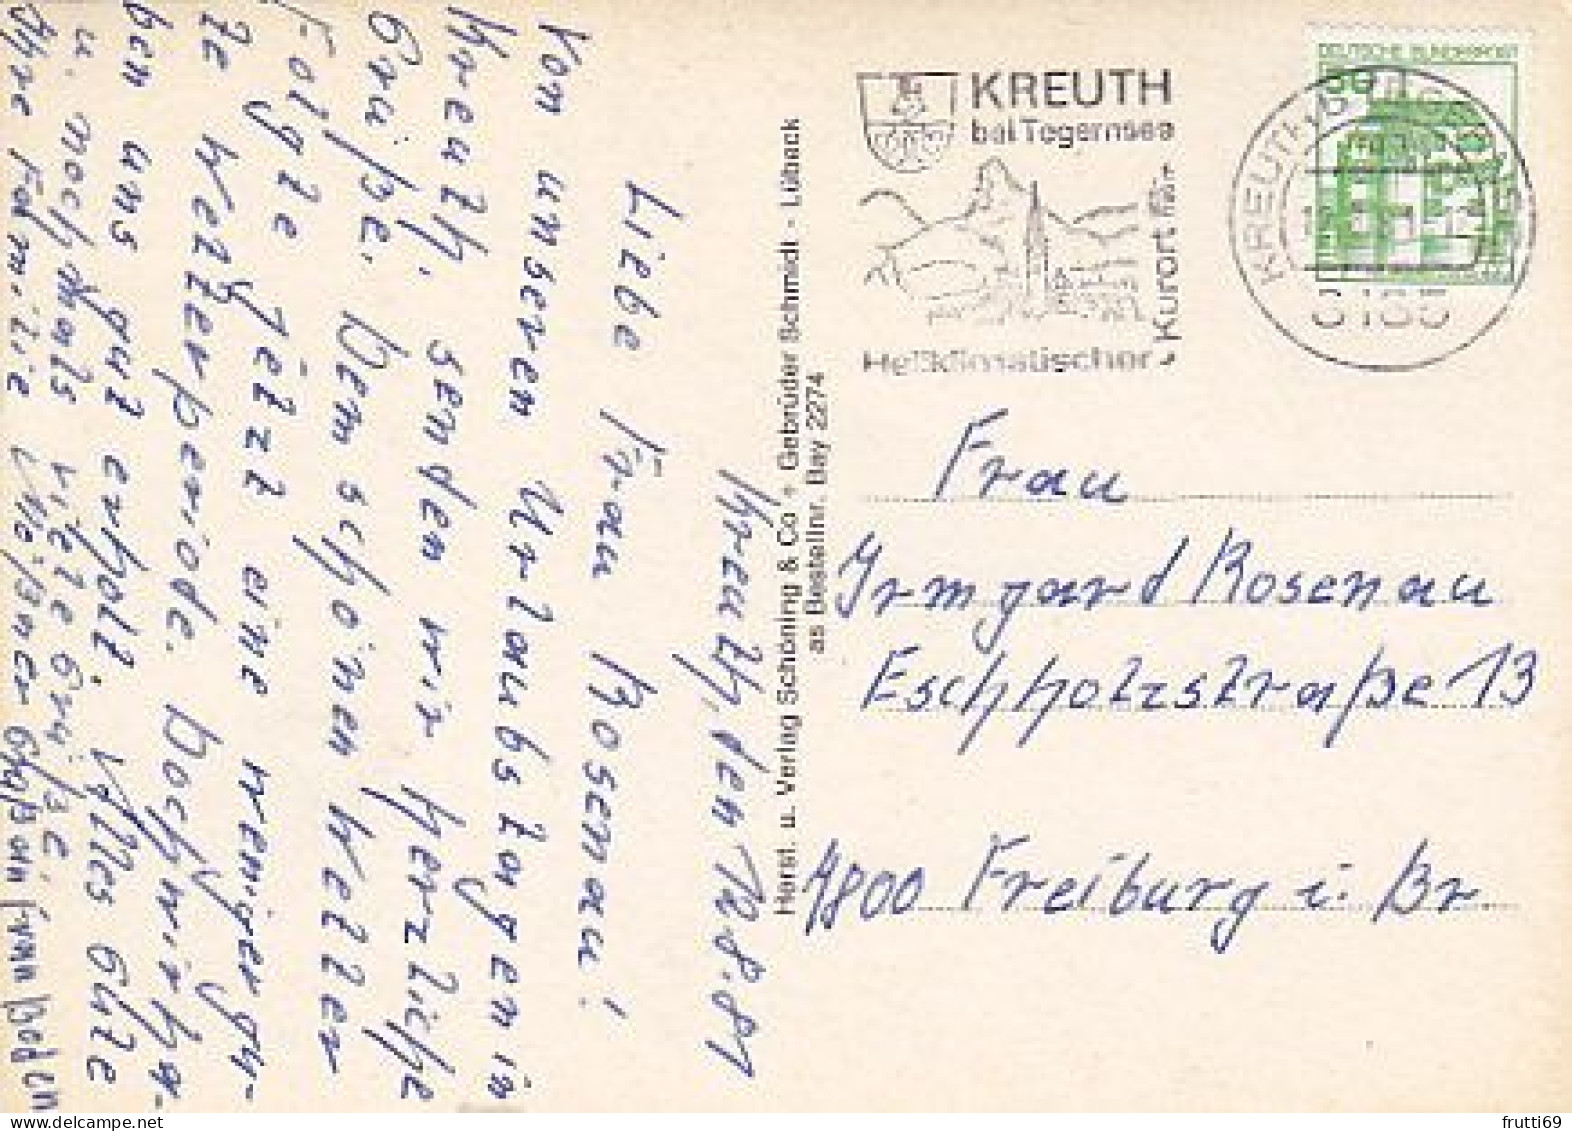 Kreuth, den 12.8.81
Liebe Frau Rosenau!
Von unseren Urlaubstagen in
Kreuth, senden wir herzliche
Grüße. Dem schönen Wetter
folgte jetzt eine weniger gu-
te Wetterperiode. Doch wir ha-
ben uns gut erholt. Alles Gute
u. nochmals viele Grüße
Ihre Familie
DEUTSCHE BUNDESPOST
50
KREUTH
bei Tegernsee
Heilklimatischer
Kurort
KREUTH
8185
Horst. u. Verlag Schöning & Co + Gebrüder Schmidt - Lübeck
as Bestellnr. Bay 2274
Frau
Irmgard Rosenau
Eschholzstraße 13
7800 Freiburg i. Br
frutti69